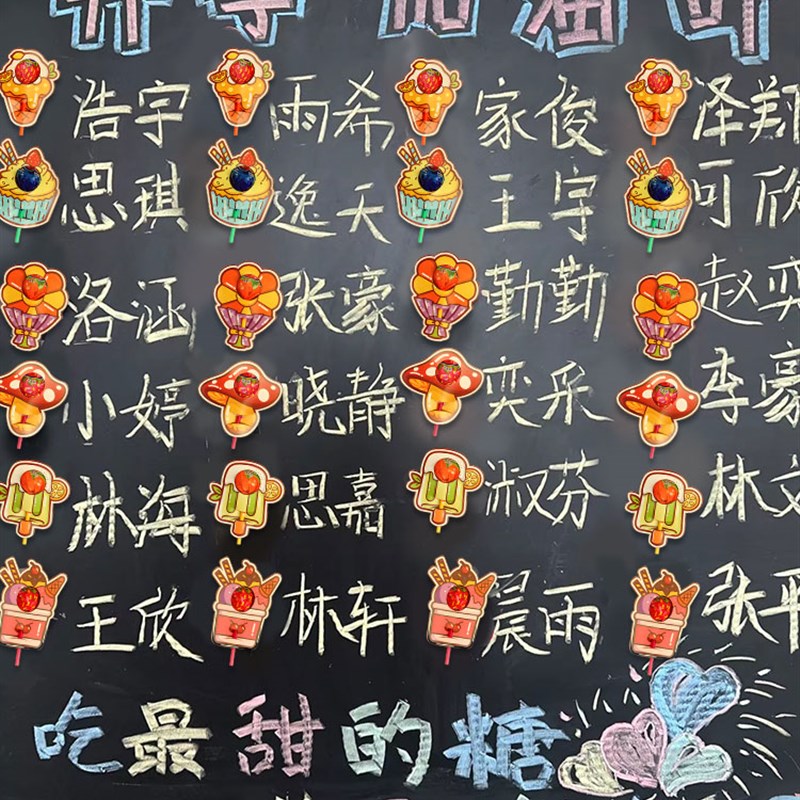 加油
浩宇 雨希 家俊 泽翔
思琪 逸天 王宇 可欣
洛涵 张豪 勤勤 赵奕
小婷 晓静 奕采 李豪
林海 思嘉 淑芬 林文
王欣 林轩 晨雨 张平
吃最甜的糖